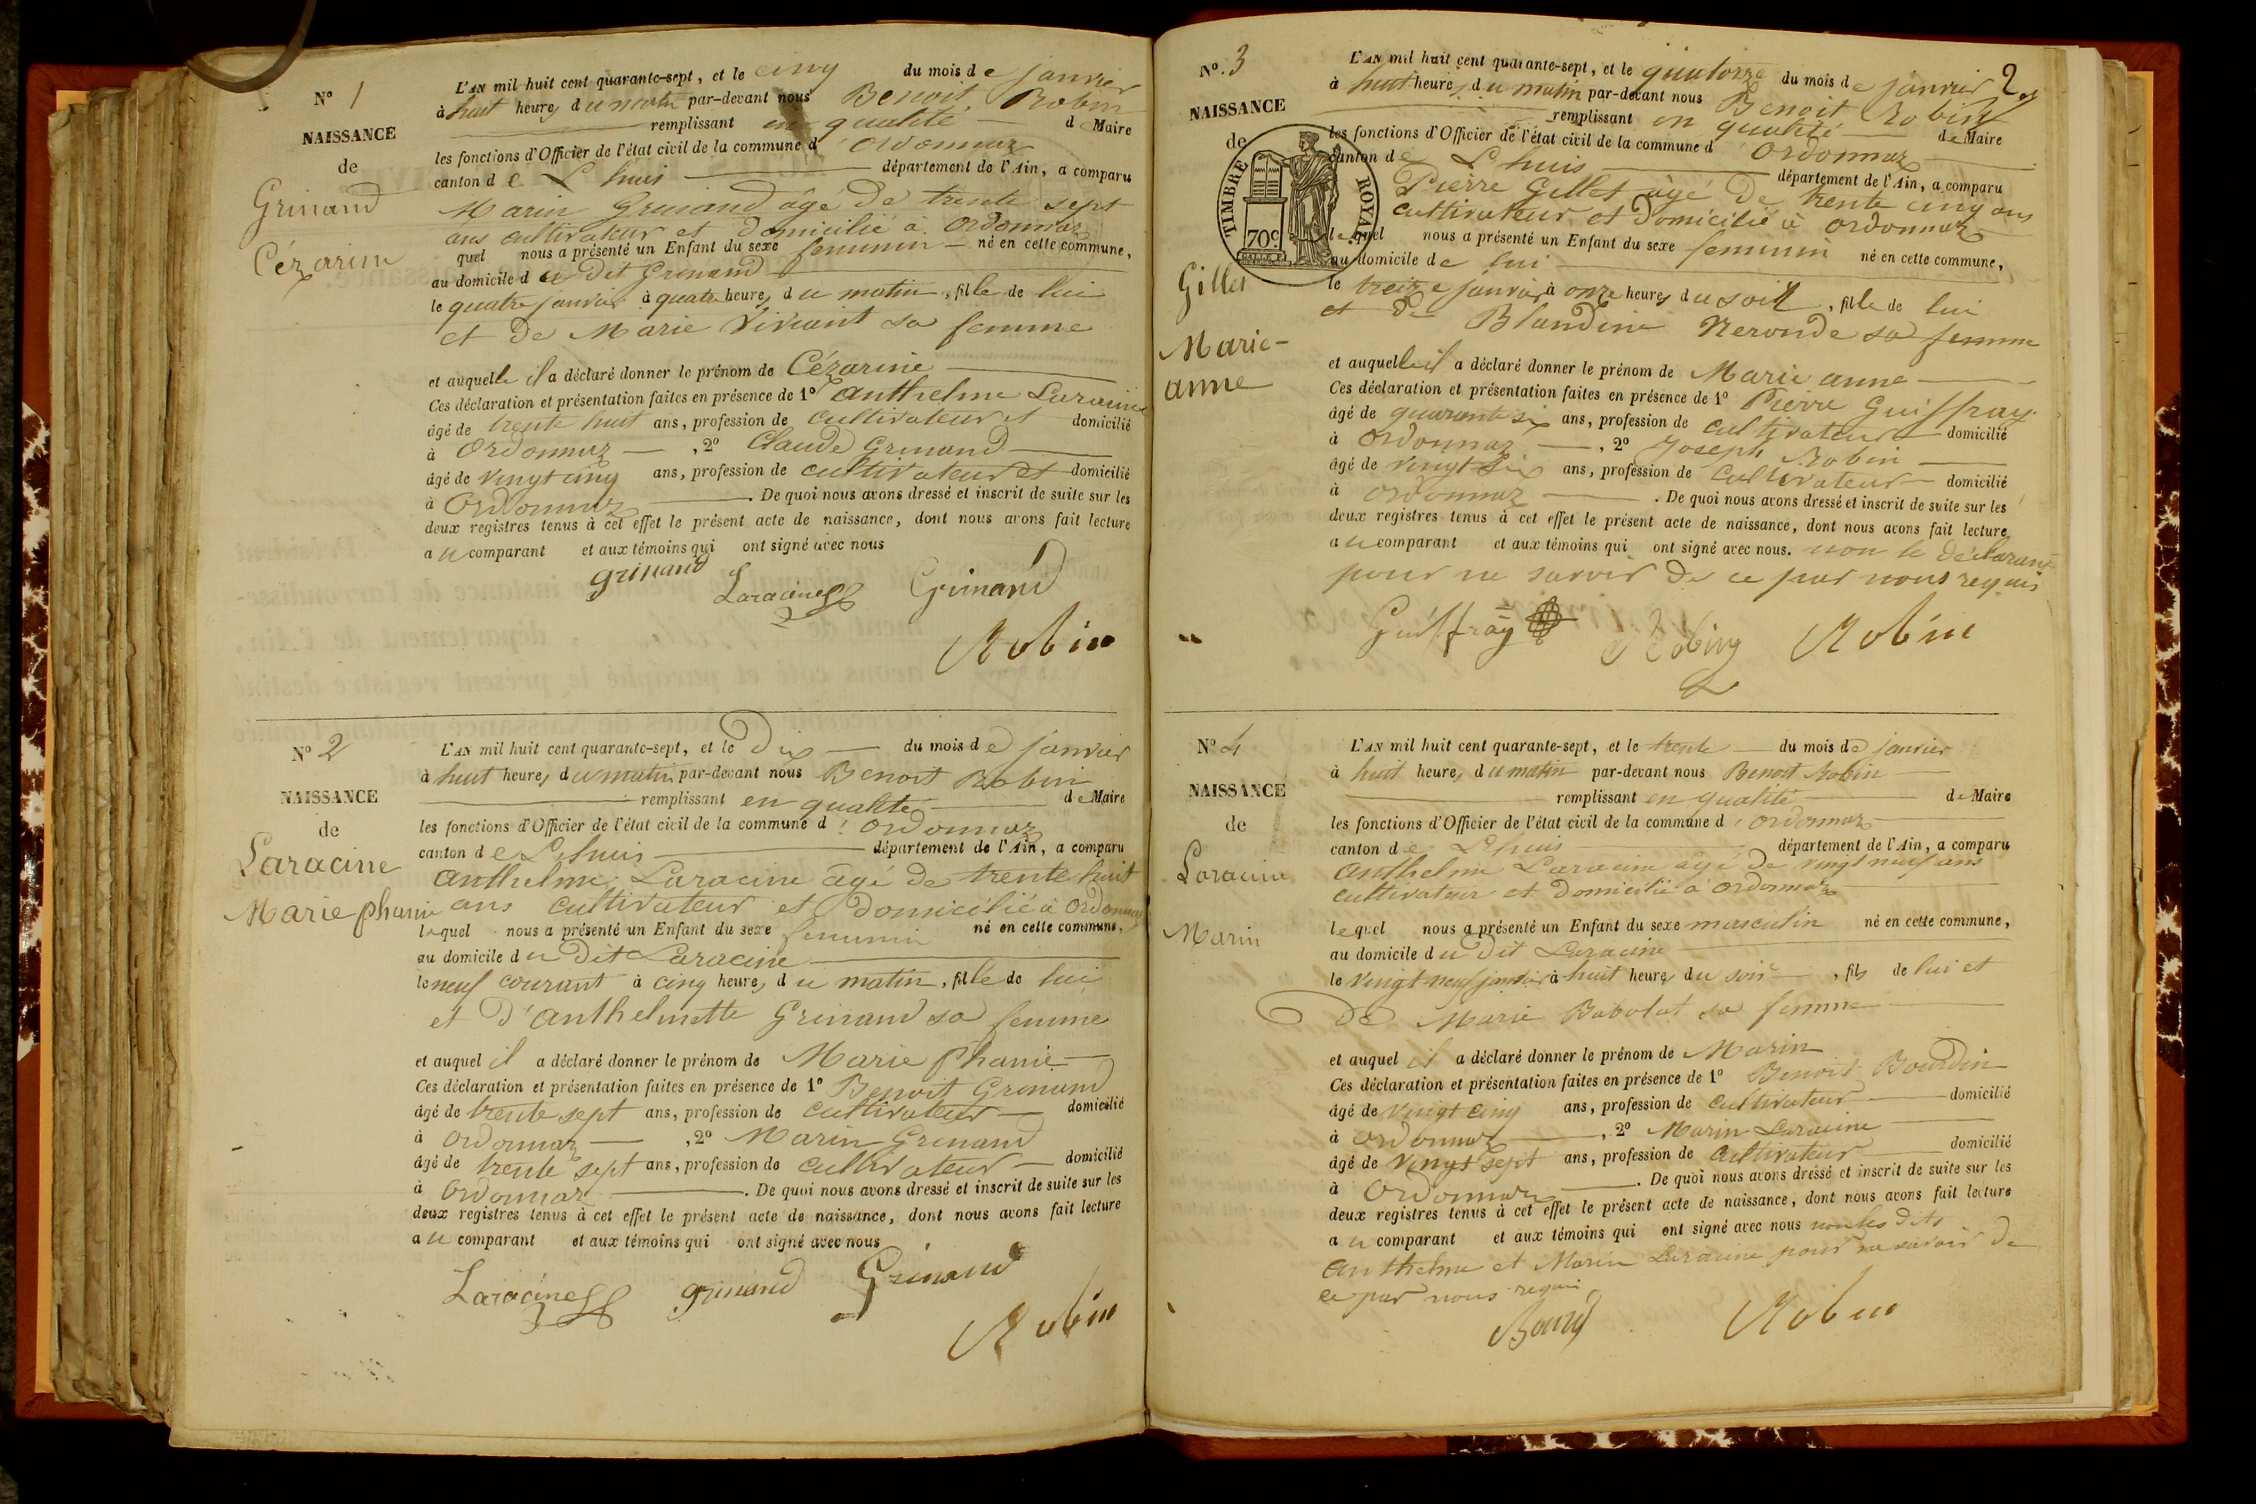 N° 1
NAISSANCE
de
Grinand
Cézarine
L'AN mil huit cent quarante-sept, et le cinq du mois de janvier
à huit heures du matin par-devant nous Benoit Robin
remplissant en qualité de Maire
les fonctions d'Officier de l'état civil de la commune d'Ordonnaz
canton de Lhuis département de l'Ain, a comparu
Marin Grinand âgé de trente sept
ans cultivateur et domicilié à Ordonnaz
quel nous a présenté un Enfant du sexe feminin né en cette commune,
au domicile du dit Grinand
le quatre janvier à quatre heures du matin, fille de lui
et de Marie Viviant sa femme
et auquelle il a déclaré donner le prénom de Cézarine
Ces déclaration et présentation faites en présence de 1° Anthelme Laracine
âgé de trente huit ans, profession de cultivateur et domicilié
à Ordonnaz, 2° Claude Grinand
âgé de vingt cinq ans, profession de cultivateur et domicilié
à Ordonnaz. De quoi nous avons dressé et inscrit de suite sur les
deux registres tenus à cet effet le présent acte de naissance, dont nous avons fait lecture
au comparant et aux témoins qui ont signé avec nous
grinand Laracine Grinand
Robin
N° 2
NAISSANCE
de
Laracine
Marie phanie
L'AN mil huit cent quarante-sept, et le Dix du mois de janvier
à huit heures du matin par-devant nous Benoit Robin
remplissant en qualité de Maire
les fonctions d'Officier de l'état civil de la commune d'Ordonnaz
canton de Lhuis département de l'Ain, a comparu
Anthelme Laracine âgé de trente huit
ans cultivateur et domicilié à Ordonnaz
lequel nous a présenté un Enfant du sexe feminin né en cette commune,
au domicile du Dit Laracine
le neuf courant à cinq heures du matin, fille de lui
et d'Anthelmette Grinand sa femme
et auquel il a déclaré donner le prénom de Marie phanie
Ces déclaration et présentation faites en présence de 1° Benoit Grinand
âgé de trente sept ans, profession de cultivateur domicilié
à Ordonnaz, 2° Marin Grinand
âgé de trente sept ans, profession de cultivateur domicilié
à Ordonnaz. De quoi nous avons dressé et inscrit de suite sur les
deux registres tenus à cet effet le présent acte de naissance, dont nous avons fait lecture
au comparant et aux témoins qui ont signé avec nous
Laracine grinand Grinand
Robin
2
N° 3
NAISSANCE
de
TIMBRE ROYAL
70c
Gillet
Marie-
anne
L'AN mil huit cent quarante-sept, et le quatorze du mois de janvier
à huit heures du matin par-devant nous Benoit Robin
remplissant en qualité de Maire
les fonctions d'Officier de l'état civil de la commune d'Ordonnaz
canton de Lhuis département de l'Ain, a comparu
Pierre Gillet âgé de trente cinq ans
cultivateur et domicilié à Ordonnaz
lequel nous a présenté un Enfant du sexe feminin né en cette commune,
au domicile de lui
le treize janvier à onze heures du soir, fille de lui
et de Blandine Neronde sa femme
et auquelle il a déclaré donner le prénom de Marie anne
Ces déclaration et présentation faites en présence de 1° Pierre Guiffray
âgé de quarante six ans, profession de cultivateur domicilié
à Ordonnaz, 2° Joseph Robin
âgé de vingt six ans, profession de cultivateur domicilié
à Ordonnaz. De quoi nous avons dressé et inscrit de suite sur les
deux registres tenus à cet effet le présent acte de naissance, dont nous avons fait lecture
au comparant et aux témoins qui ont signé avec nous. non le déclarant
pour ne savoir de ce par nous requis
Guiffray Robin Robin
N° 4
NAISSANCE
de
Laracine
Marin
L'AN mil huit cent quarante-sept, et le trente du mois de janvier
à huit heures du matin par-devant nous Benoit Robin
remplissant en qualité de Maire
les fonctions d'Officier de l'état civil de la commune d'Ordonnaz
canton de Lhuis département de l'Ain, a comparu
Anthelme Laracine âgé de vingt neuf ans
cultivateur et domicilié à Ordonnaz
lequel nous a présenté un Enfant du sexe masculin né en cette commune,
au domicile du Dit Laracine
le vingt neuf janvier à huit heures du soir, fils de lui et
De Marie Babolat sa femme
et auquel il a déclaré donner le prénom de Marin
Ces déclaration et présentation faites en présence de 1° Benoit Bourdin
âgé de vingt cinq ans, profession de cultivateur domicilié
à Ordonnaz, 2° Marin Laracine
âgé de vingt sept ans, profession de cultivateur domicilié
à Ordonnaz. De quoi nous avons dressé et inscrit de suite sur les
deux registres tenus à cet effet le présent acte de naissance, dont nous avons fait lecture
au comparant et aux témoins qui ont signé avec nous non les dits
Anthelme et Marin Laracine pour ne savoir de
ce par nous requis
Robin